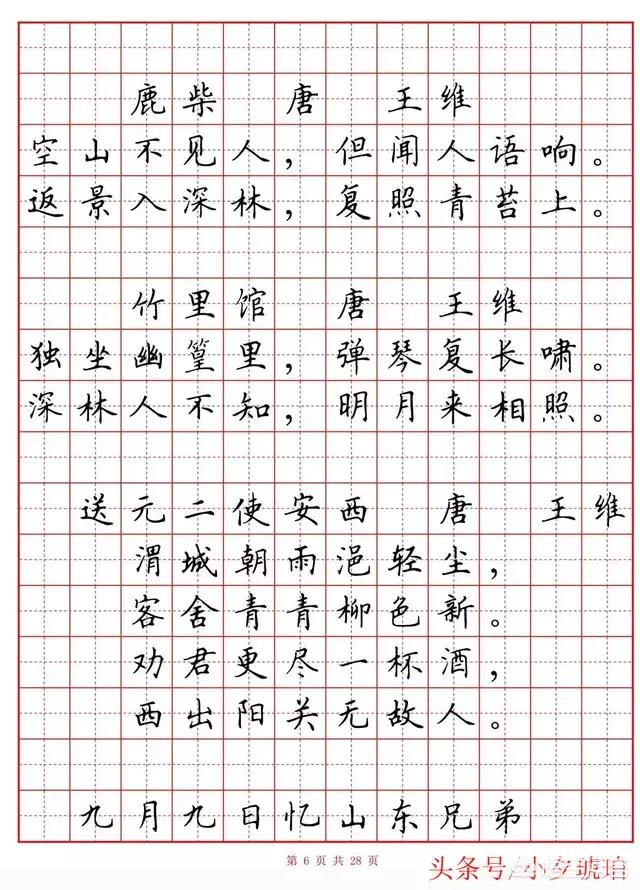 鹿柴 唐 王维
空山不见人，但闻人语响。
返景入深林，复照青苔上。
竹里馆 唐 王维
独坐幽篁里，弹琴复长啸。
深林人不知，明月来相照。
送元二使安西 唐 王维
渭城朝雨浥轻尘，
客舍青青柳色新。
劝君更尽一杯酒，
西出阳关无故人。
九月九日忆山东兄弟
第 6 页 共 28 页
头条号/小夕琥珀